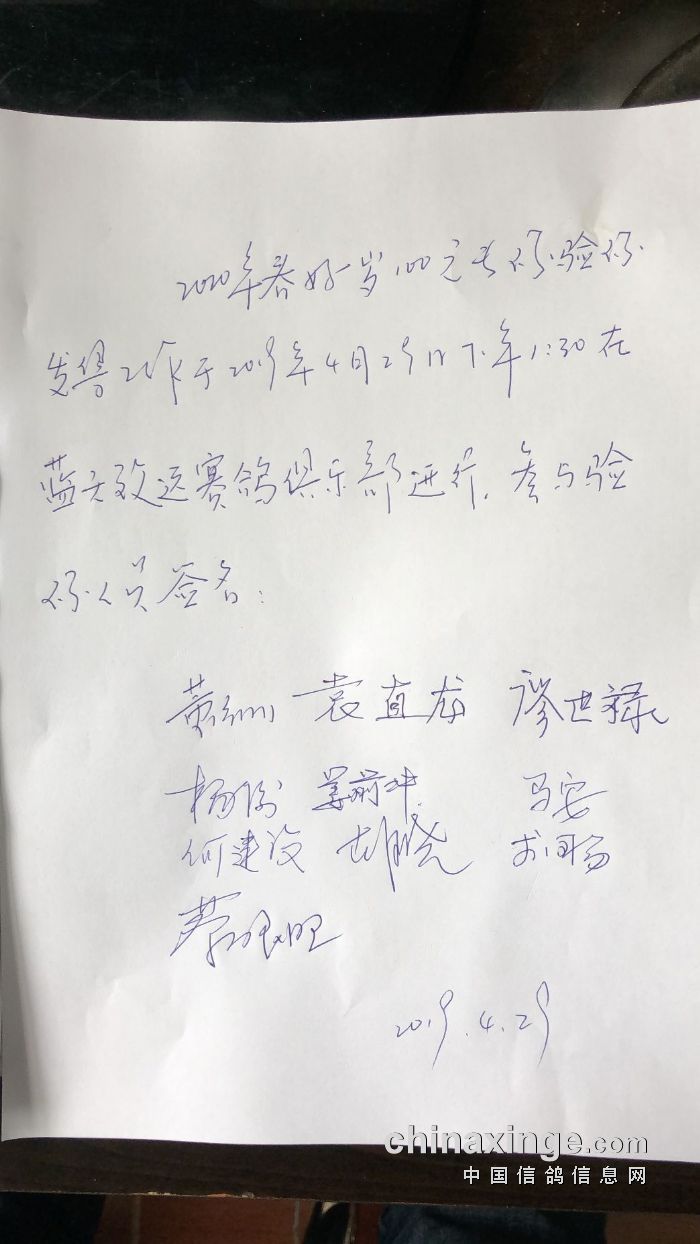 2020年春好岁100元专环验环
发奖工作于2019年4月29日下午1:30在
蓝天致远赛鸽俱乐部进行，参与验
环人员签名：
袁直龙 廖世禄
马安
何建设 胡晓
2019.4.29
chinaxinge.com
中国信鸽信息网